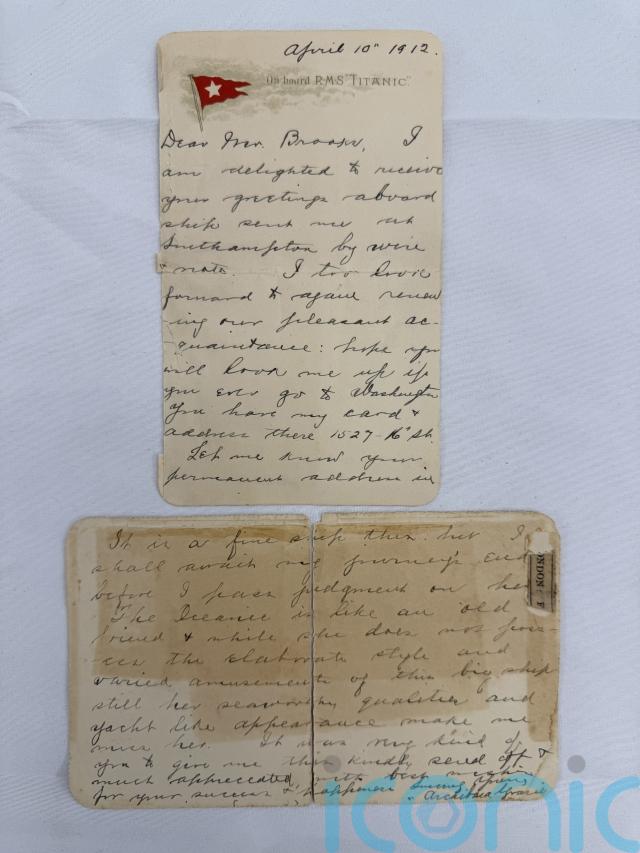 April 10" 1912.
On board R.M.S. "TITANIC".
Dear Mr. Brooks, I
am delighted to receive
your greetings aboard
ship sent me at
Southampton by wire
& note. I too look
forward to again renew
-ing our pleasant ac-
quaintance: hope you
will look me up if
you ever go to Washington
You have my card &
address there 1527-16" St.
Let me know your
permanent address in
It is a fine ship this but I
shall await my journey's end
before I pass judgment on her
LONDON
The Oceanic is like an old
friend & while she does not poss-
-ess the elaborate style and
varied amusements of this big ship
still her seaworthy qualities and
yacht like appearance make me
miss her. It was very kind of
you to give me this kindly send off &
much appreciated, with best wishes
for your success & happiness Yours
Archibald Gracie
iconic